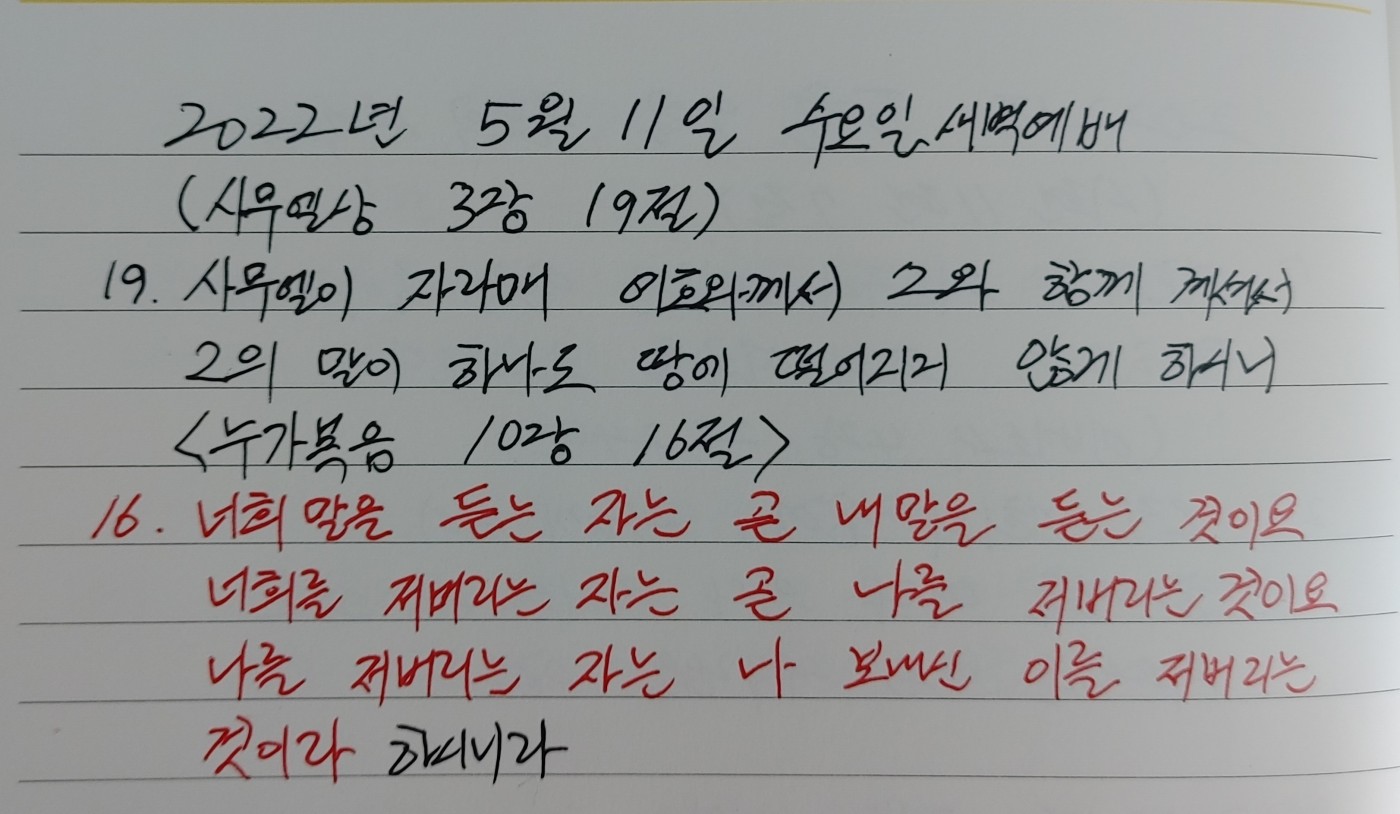 2022년 5월 11일 수요일 새벽예배
(사무엘상 3장 19절)
19. 사무엘이 자라매 여호와께서 그와 함께 계셔서
그의 말이 하나도 땅에 떨어지지 않게 하시니
<누가복음 10장 16절>
16. 너희 말을 듣는 자는 곧 내 말을 듣는 것이요
너희를 저버리는 자는 곧 나를 저버리는 것이요
나를 저버리는 자는 나 보내신 이를 저버리는
것이라 하시니라